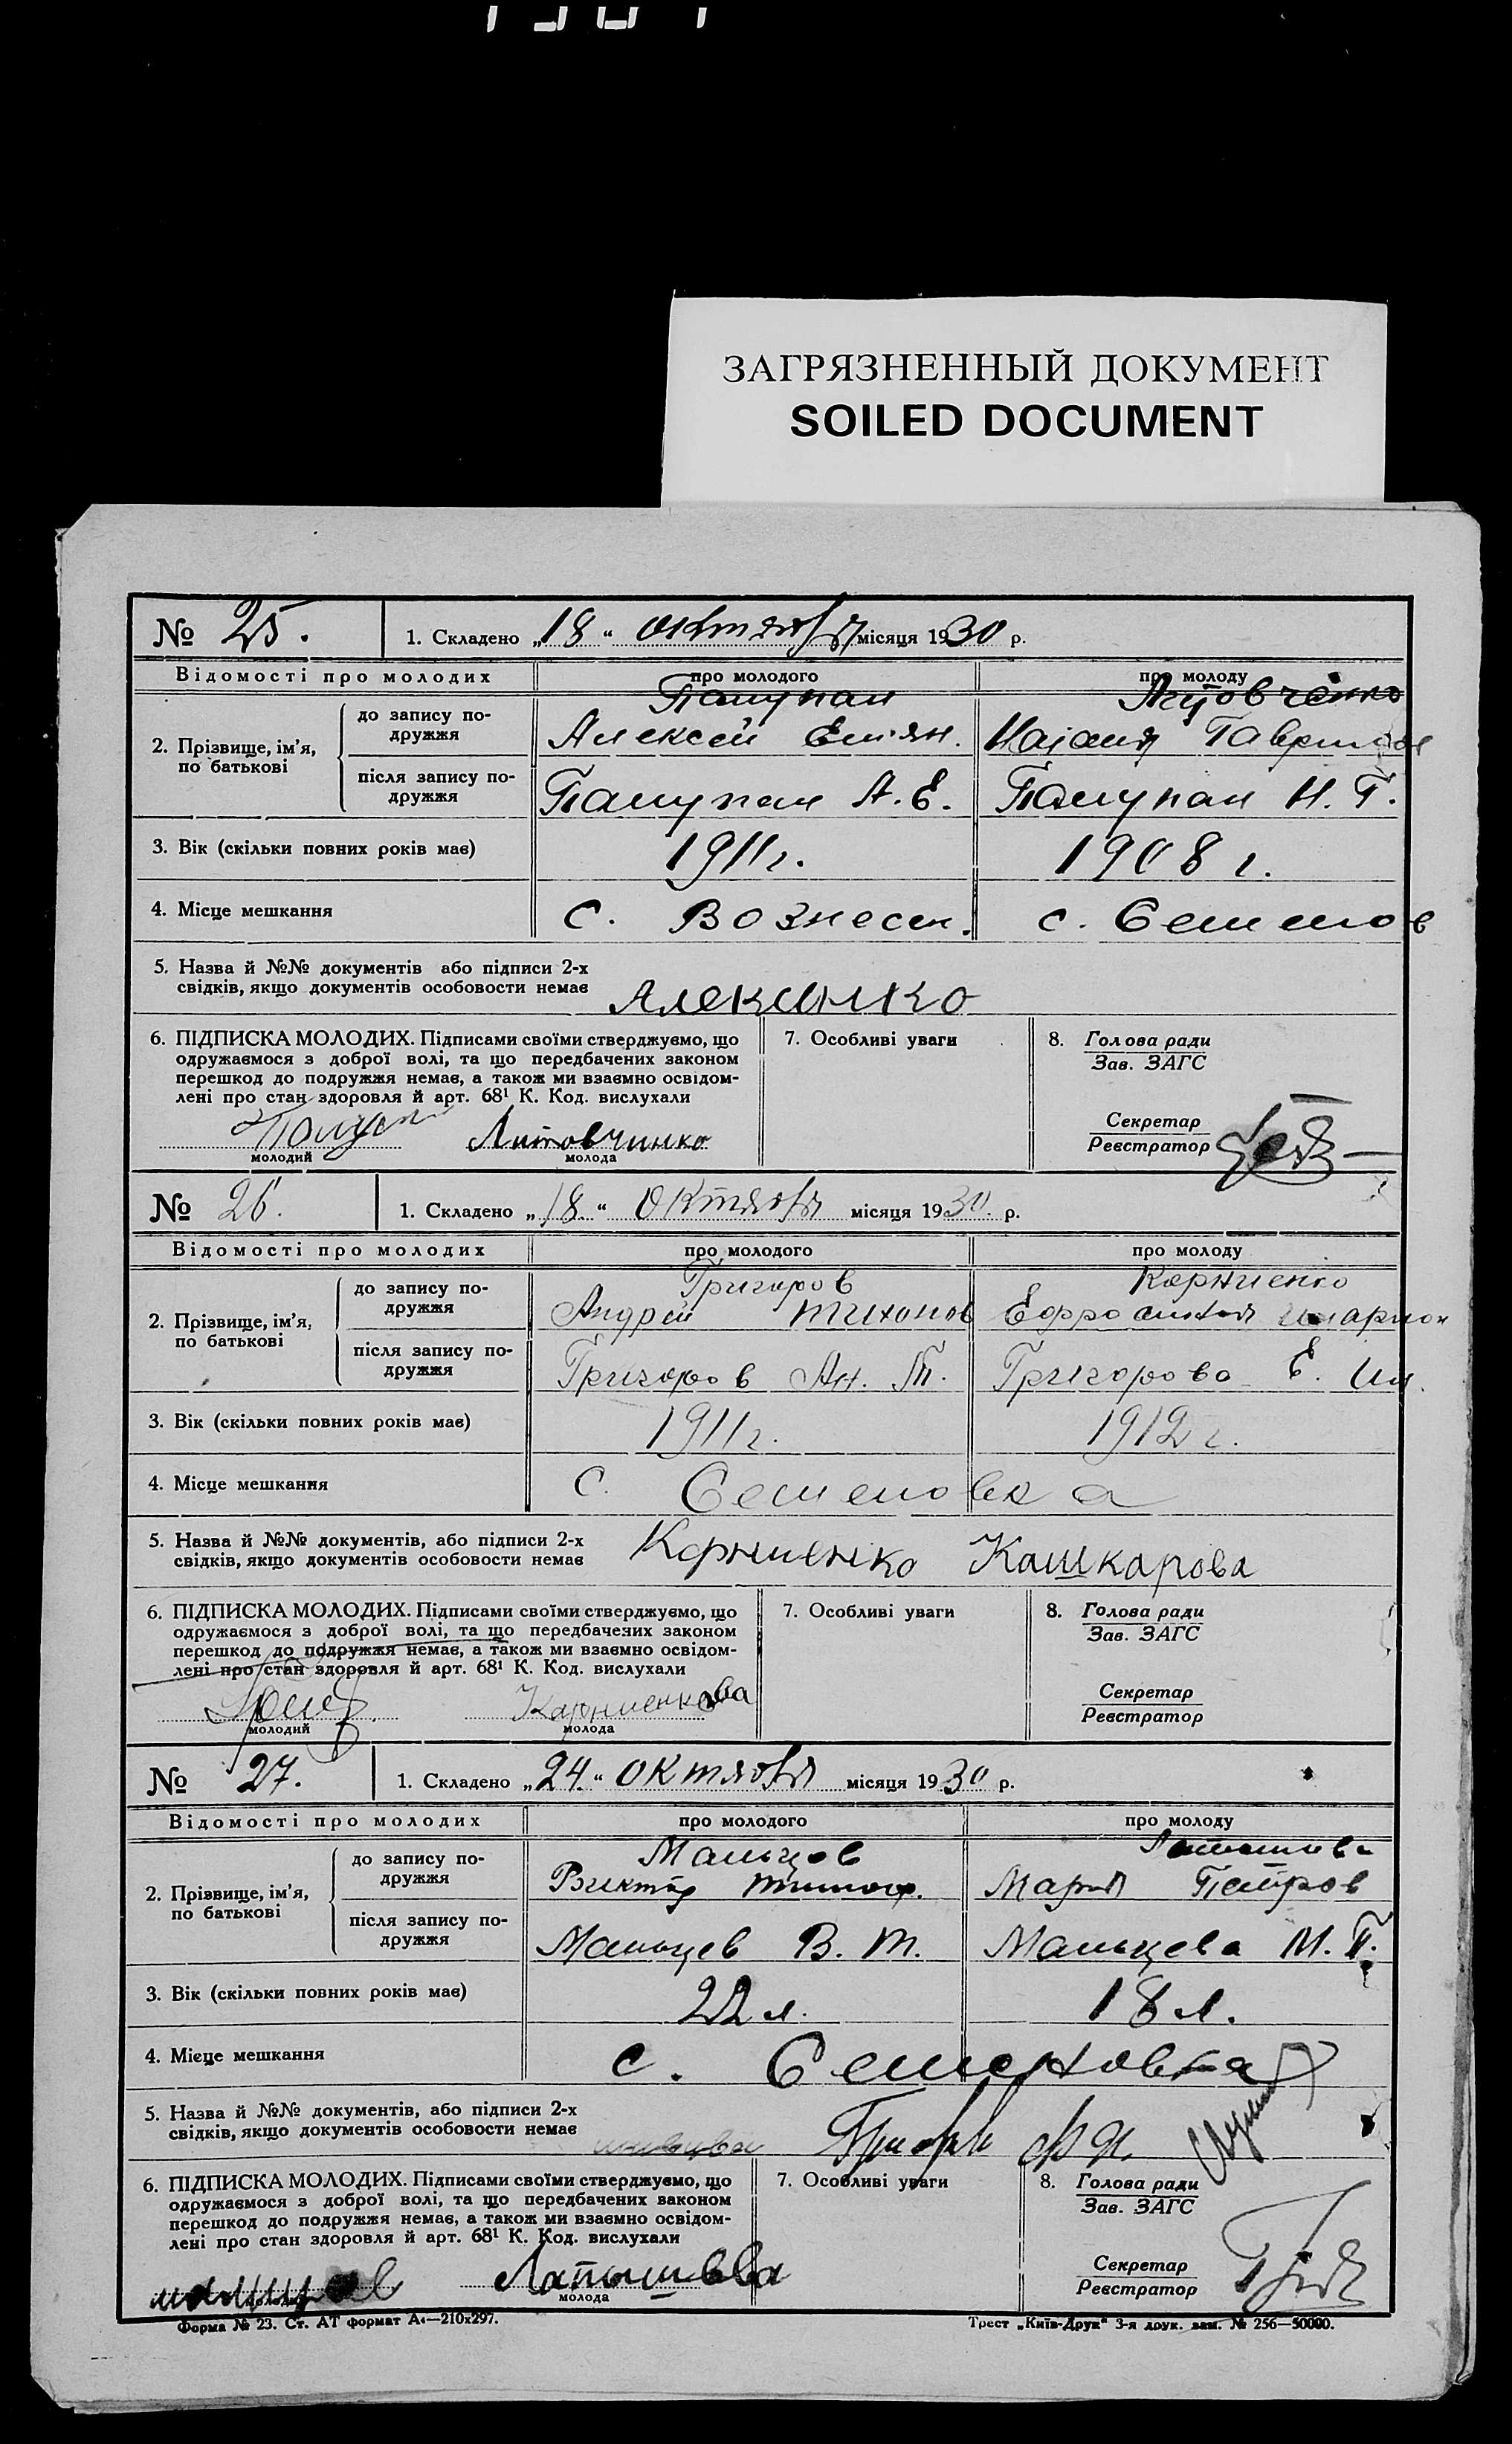 ЗАГРЯЗНЕННЫЙ ДОКУМЕНТ
SOILED DOCUMENT
№ 25. 1. Складено „18“ октября місяця 1930 р.
Відомості про молодих про молодого про молоду
2. Прізвище, ім’я, по батькові
до запису подружжя
Алексей Емян.
після запису подружжя
А. Е. Н. Г.
3. Вік (скільки повних років має) 1911 г. 1908 г.
4. Місце мешкання с. Вознесен. с. Семенов
5. Назва й №№ документів або підписи 2-х
свідків, якщо документів особовости немає
6. ПІДПИСКА МОЛОДИХ. Підписами своїми стверджуємо, що
одружаємося з доброї волі, та що передбачених законом
перешкод до подружжя немає, а також ми взаємно освідом-
лені про стан здоровля й арт. 68¹ К. Код. вислухали
7. Особливі уваги
8. Голова ради
Зав. ЗАГС
Секретар
Реєстратор
Литовчинко
молодий молода
№ 26. 1. Складено „18.“ октября місяця 1930. р.
Відомості про молодих про молодого про молоду
2. Прізвище, ім’я, по батькові
до запису подружжя
Григоров Корниенко
Андрей Тихонов
після запису подружжя
Григоров Ан. Т. Григорова Е. Ил.
3. Вік (скільки повних років має) 1911 г. 1912 г.
4. Місце мешкання с. Семеновка
5. Назва й №№ документів, або підписи 2-х
свідків, якщо документів особовости немає
Корниенко Кашкарова
6. ПІДПИСКА МОЛОДИХ. Підписами своїми стверджуємо, що
одружаємося з доброї волі, та що передбачених законом
перешкод до подружжя немає, а також ми взаємно освідом-
лені про стан здоровля й арт. 68¹ К. Код. вислухали
7. Особливі уваги
8. Голова ради
Зав. ЗАГС
Секретар
Реєстратор
молодий молода
№ 27. 1. Складено „24.“ октября місяця 1930 р.
Відомості про молодих про молодого про молоду
2. Прізвище, ім’я, по батькові
до запису подружжя
Мальцов
Виктор Тимоф. Мария Петров
після запису подружжя
Мальцев В. Т. Мальцева М. П.
3. Вік (скільки повних років має) 22 л. 18 л.
4. Місце мешкання с. Семеновка
5. Назва й №№ документів, або підписи 2-х
свідків, якщо документів особовости немає
6. ПІДПИСКА МОЛОДИХ. Підписами своїми стверджуємо, що
одружаємося з доброї волі, та що передбачених законом
перешкод до подружжя немає, а також ми взаємно освідом-
лені про стан здоровля й арт. 68¹ К. Код. вислухали
7. Особливі уваги
8. Голова ради
Зав. ЗАГС
Секретар
Реєстратор
Латышева
молода
Форма № 23. Ст. АТ формат А₄—210х297. Трест „Київ-Друк“ 3-я друк. зам. № 256—50000.